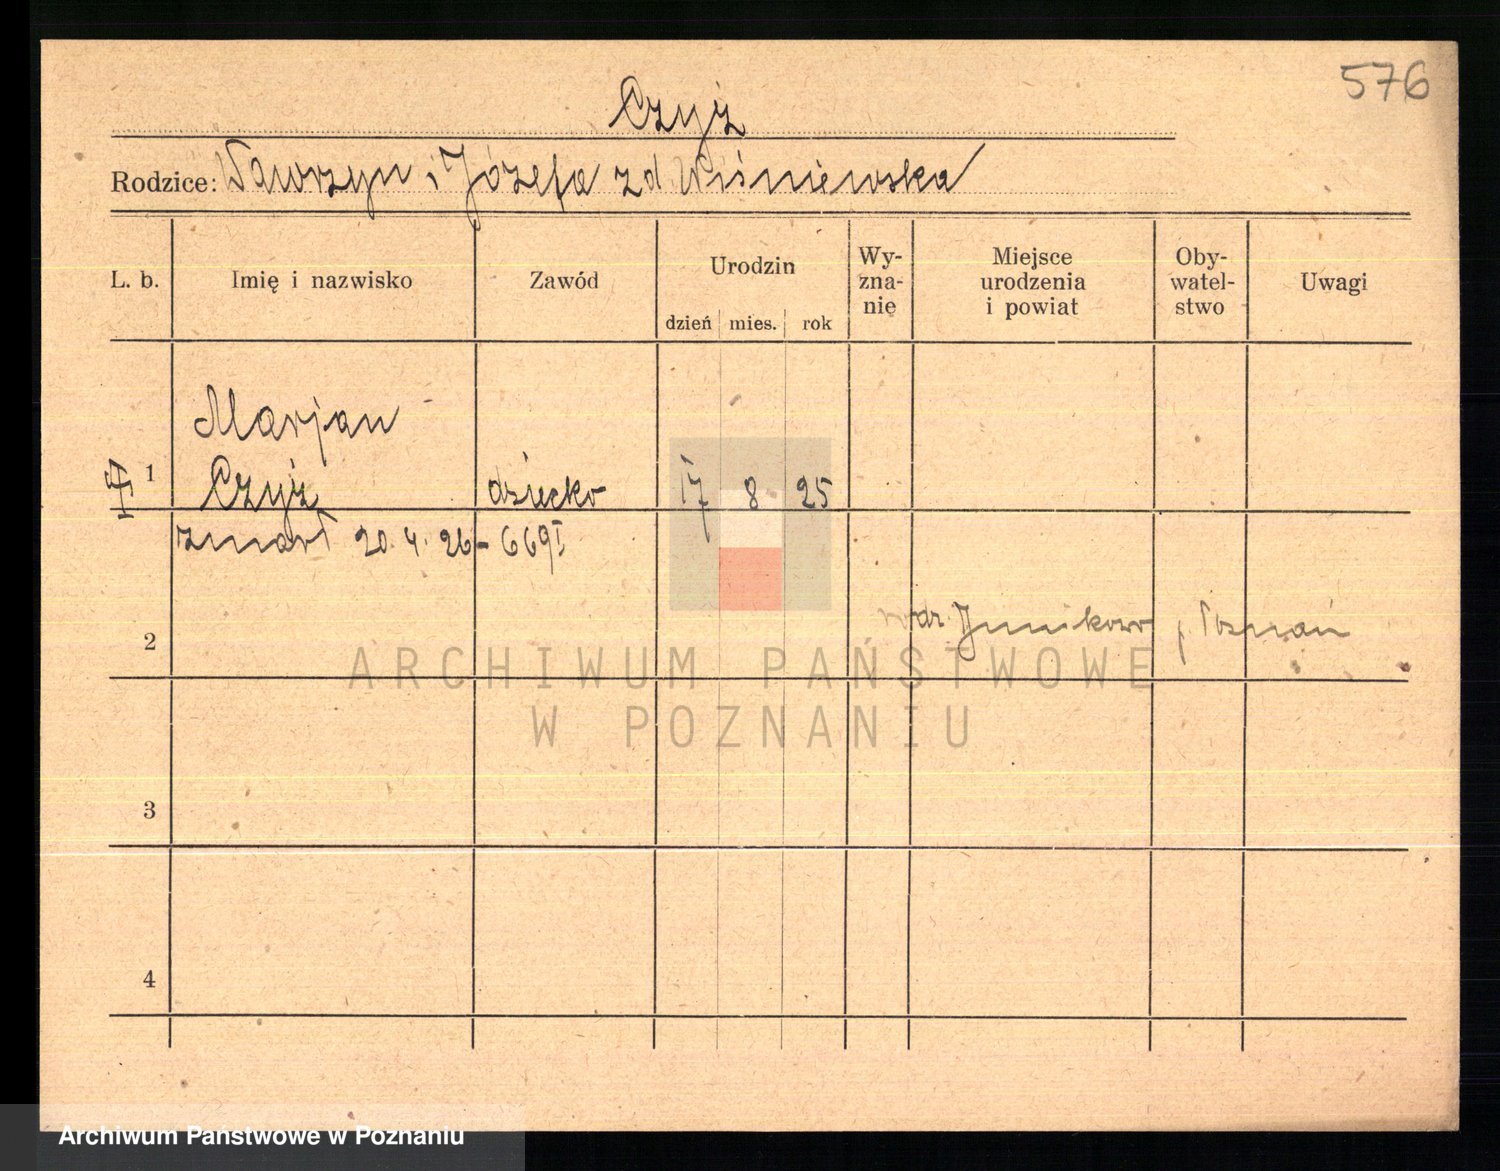 576
Czyż
Rodzice: Wawrzyn i Józefa zd. Wiśniewska
L. b. Imię i nazwisko Zawód Urodzin dzień mies. rok Wy-zna-nie Miejsce urodzenia i powiat Oby-watel-stwo Uwagi
Marjan
1 Czyż dziecko 17 8 25
zmarł 20. 4. 26 - 669I
2 Junikowo p. Poznań
ARCHIWUM PAŃSTWOWE
W POZNANIU
3
4
Archiwum Państwowe w Poznaniu